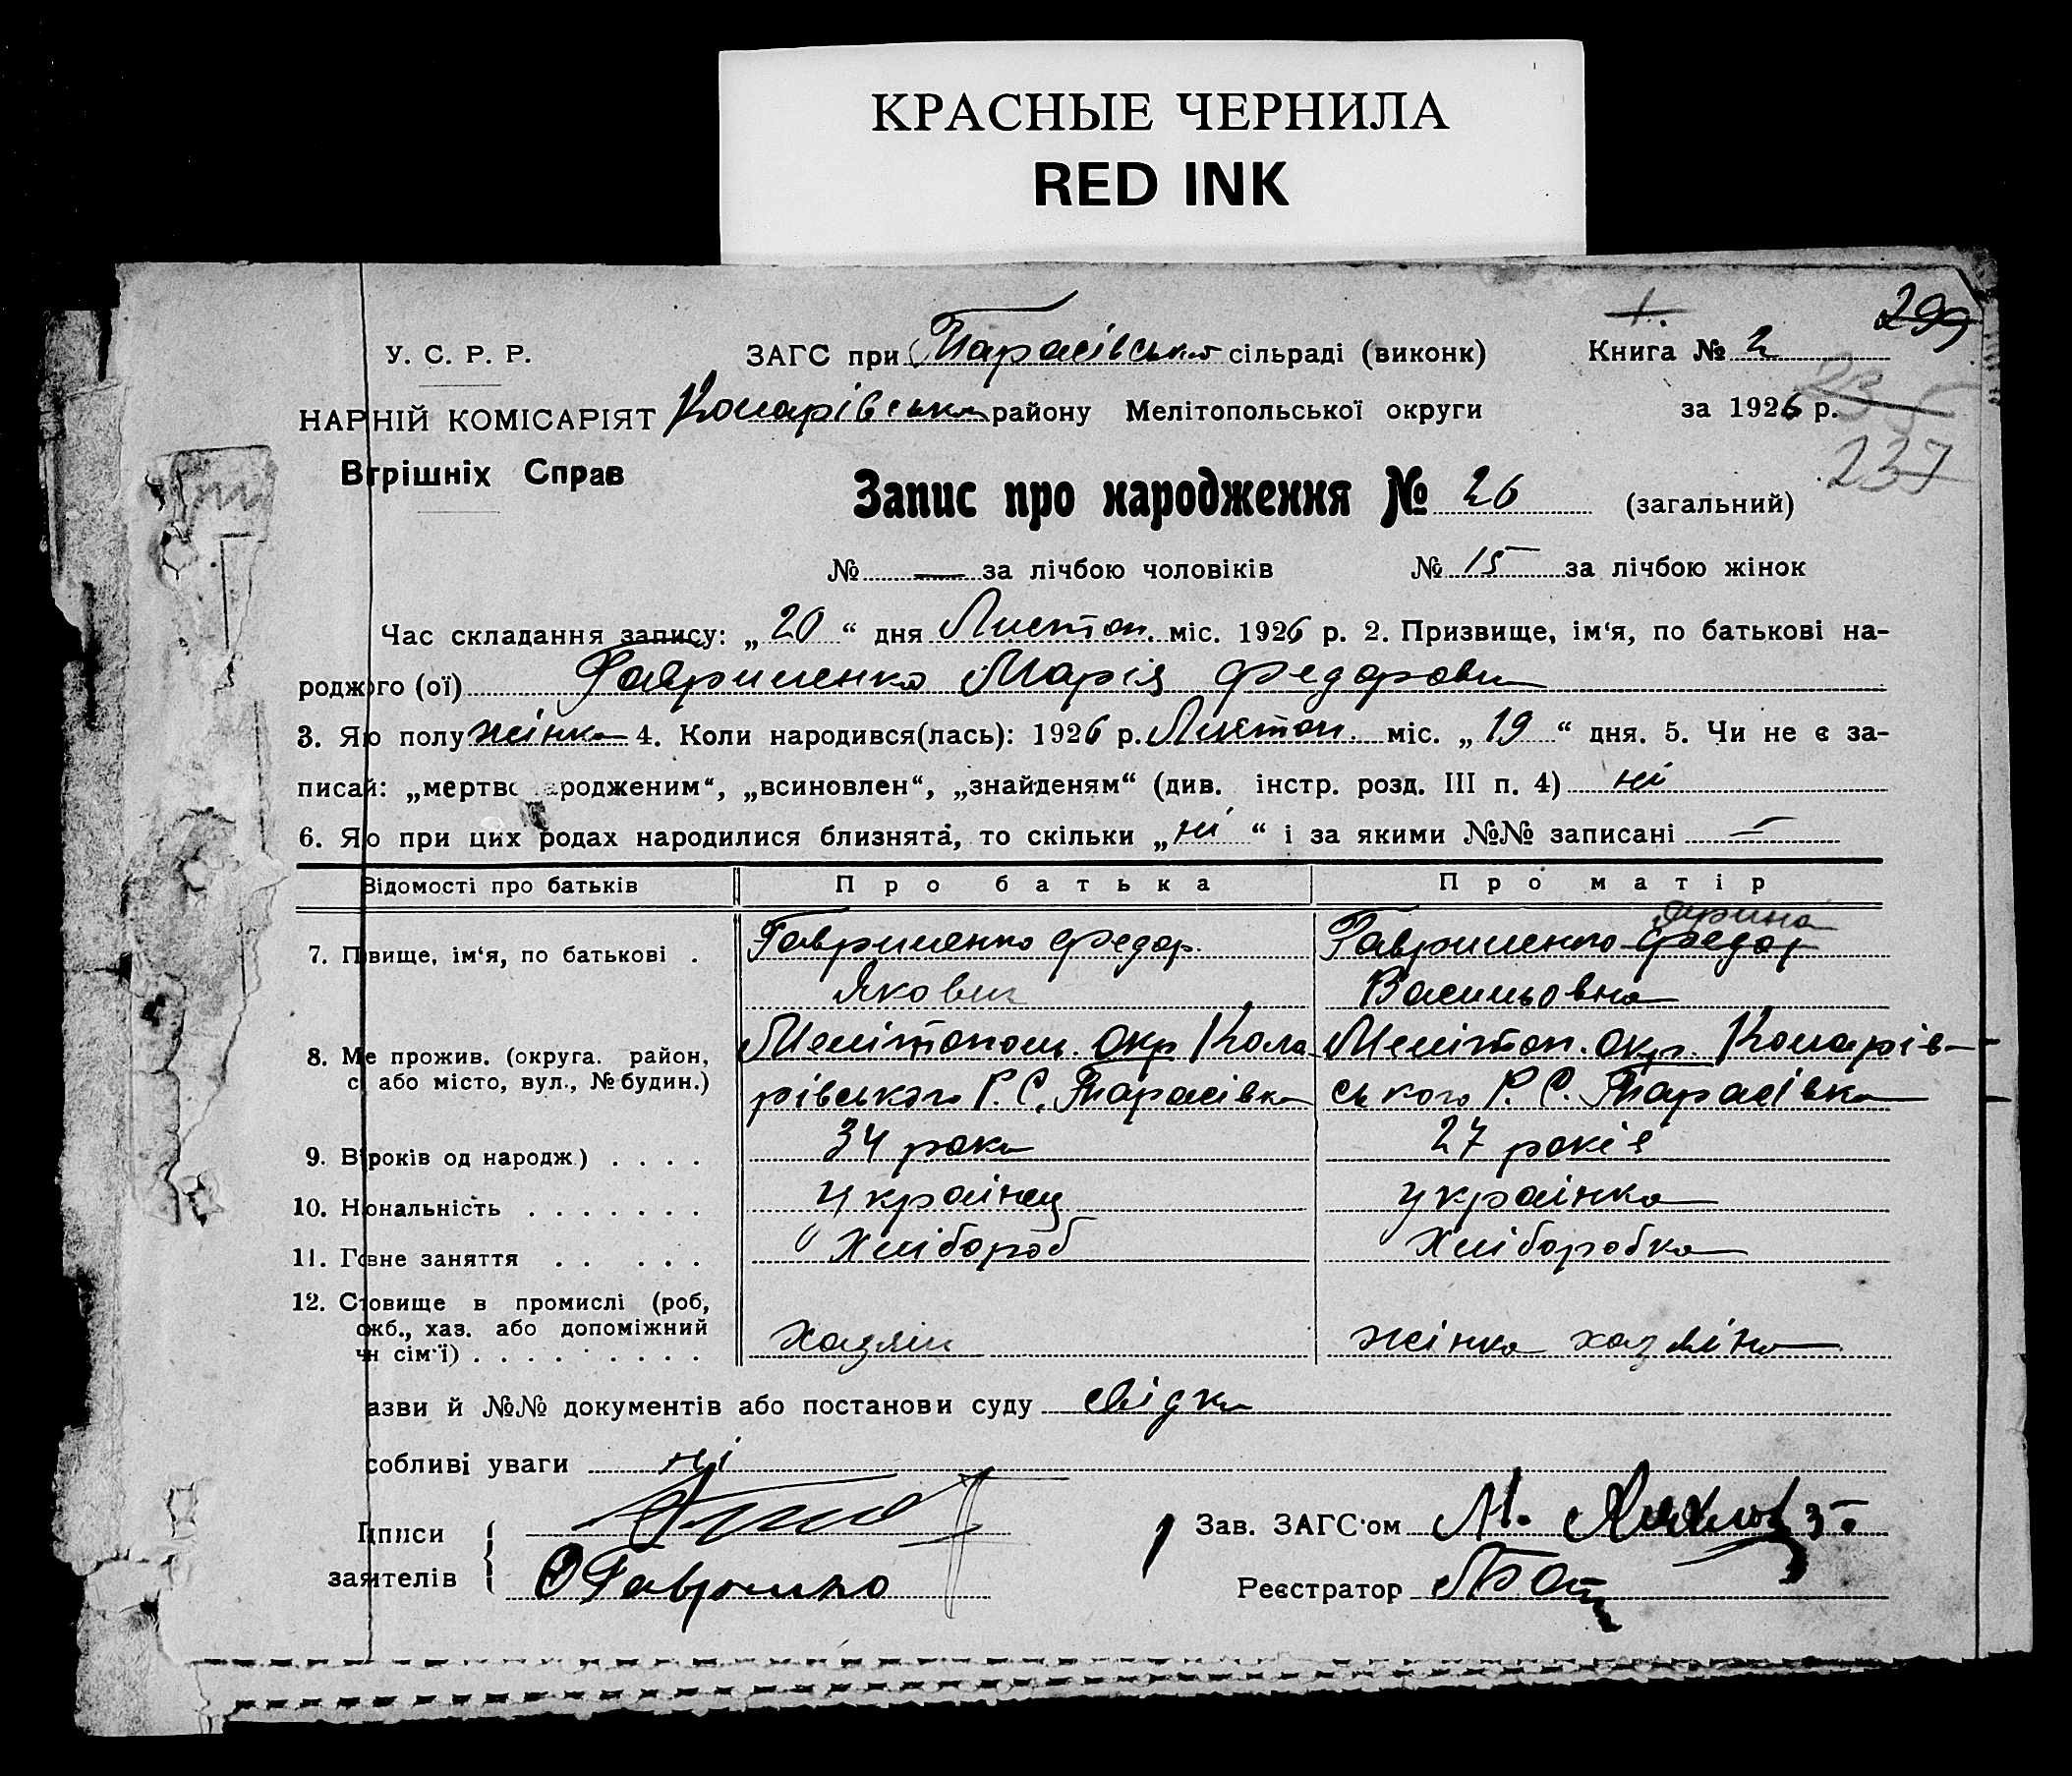 КРАСНЫЕ ЧЕРНИЛА
RED INK
299
У. С. Р. Р.
ЗАГС при Тарасівська сільраді (виконк)
Книга № 2
235
НАРНІЙ КОМІСАРІЯТ
Коларівська району Мелітопольської округи
за 1926 р.
237
Втрішніх Справ
Запис про народження № 26 (загальний)
№ — за лічбою чоловіків № 15 за лічбою жінок
Час складання запису: „ 20 “ дня Листоп. міс. 1926 р. 2. Призвище, ім‘я, по батькові на-
роджого (ої) Гавриленко Марія Федоровн
3. Яю полу жінка 4. Коли народився(лась): 1926 р. Листоп. міс. „ 19 “ дня. 5. Чи не є за-
писай: „мертво ародженим“, „всиновлен“, „знайденям“ (див. інстр. розд. III п. 4) ні
6. Яю при цих родах народилися близнята, то скільки „ ні “ і за якими №№ записані —
Відомості про батьків
Про батька
Про матір
7. Пвище, ім‘я, по батькові .
Гавриленко Федор.
Якович
Ярина
Гавриленко Федор
Васильовна
8. Ме прожив. (округа. район,
с. або місто, вул., № будин.)
Мелітопол. окр Кола
рівського Р. С. Тарасівка
Мелітоп. окр. Коларів-
ського Р. С. Тарасівка
9. В років од народж.) . . . .
34 роки
27 років
10. Нональність . . . . . . .
Українец
українка
11. Говне заняття . . . . .
Хлібороб
Хліборобка
12. Стовище в промислі (роб,
жб., хаз. або допоміжний
чн сім‘ї) . . . . . . . . .
Хазяін
жінка хазяіна
азви й №№ документів або постанови суду свідки
собливі уваги ні
Пписи
заятелів
О Гаврилко
Зав. ЗАГС‘ом М.
Реєстратор